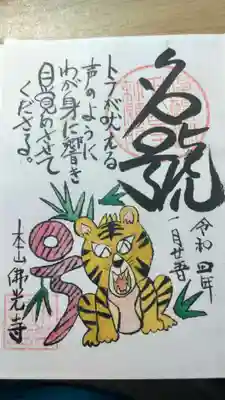 名號
令和四年
トラが吠える
声のように
わが身に響き
目覚めさせて
くださる。
本山佛光寺